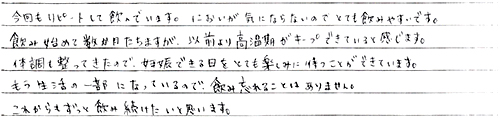 今回もリピートして飲んでいます。においが気にならないのでとても飲みやすいです。
飲み始めて数か月たちますが、以前より高温期がキープできていると感じます。
体調も整ってきたので、妊娠できる日をとても楽しみに待つことができています。
もう生活の一部になっているので、飲み忘れることはありません。
これからもずっと飲み続けたいと思います。